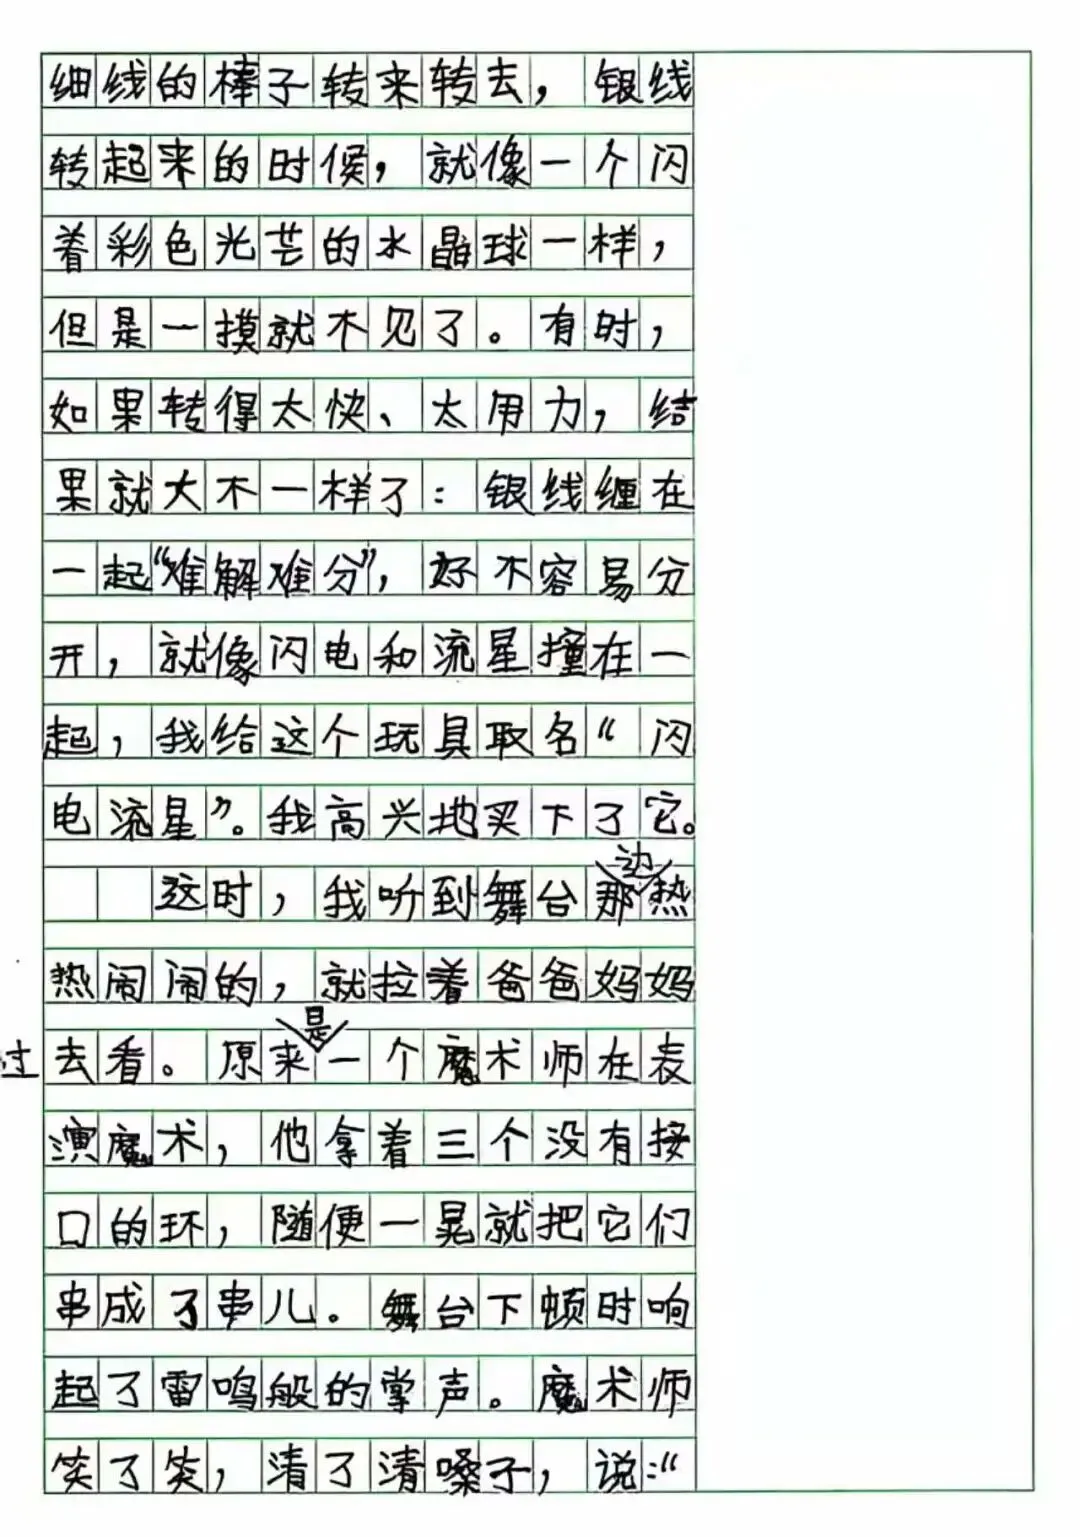 细线的棒子转来转去，银线
转起来的时候，就像一个闪
着彩色光芒的水晶球一样，
但是一摸就不见了。有时，
如果转得太快、太用力，结
果就大不一样了：银线缠在
一起“难解难分”，好不容易分
开，就像闪电和流星撞在一
起，我给这个玩具取名“闪
电流星”。我高兴地买下了它。
这时，我听到舞台那边热
热闹闹的，就拉着爸爸妈妈
过去看。原来是一个魔术师在表
演魔术，他拿着三个没有接
口的环，随便一晃就把它们
串成了串儿。舞台下顿时响
起了雷鸣般的掌声。魔术师
笑了笑，清了清嗓子，说：“